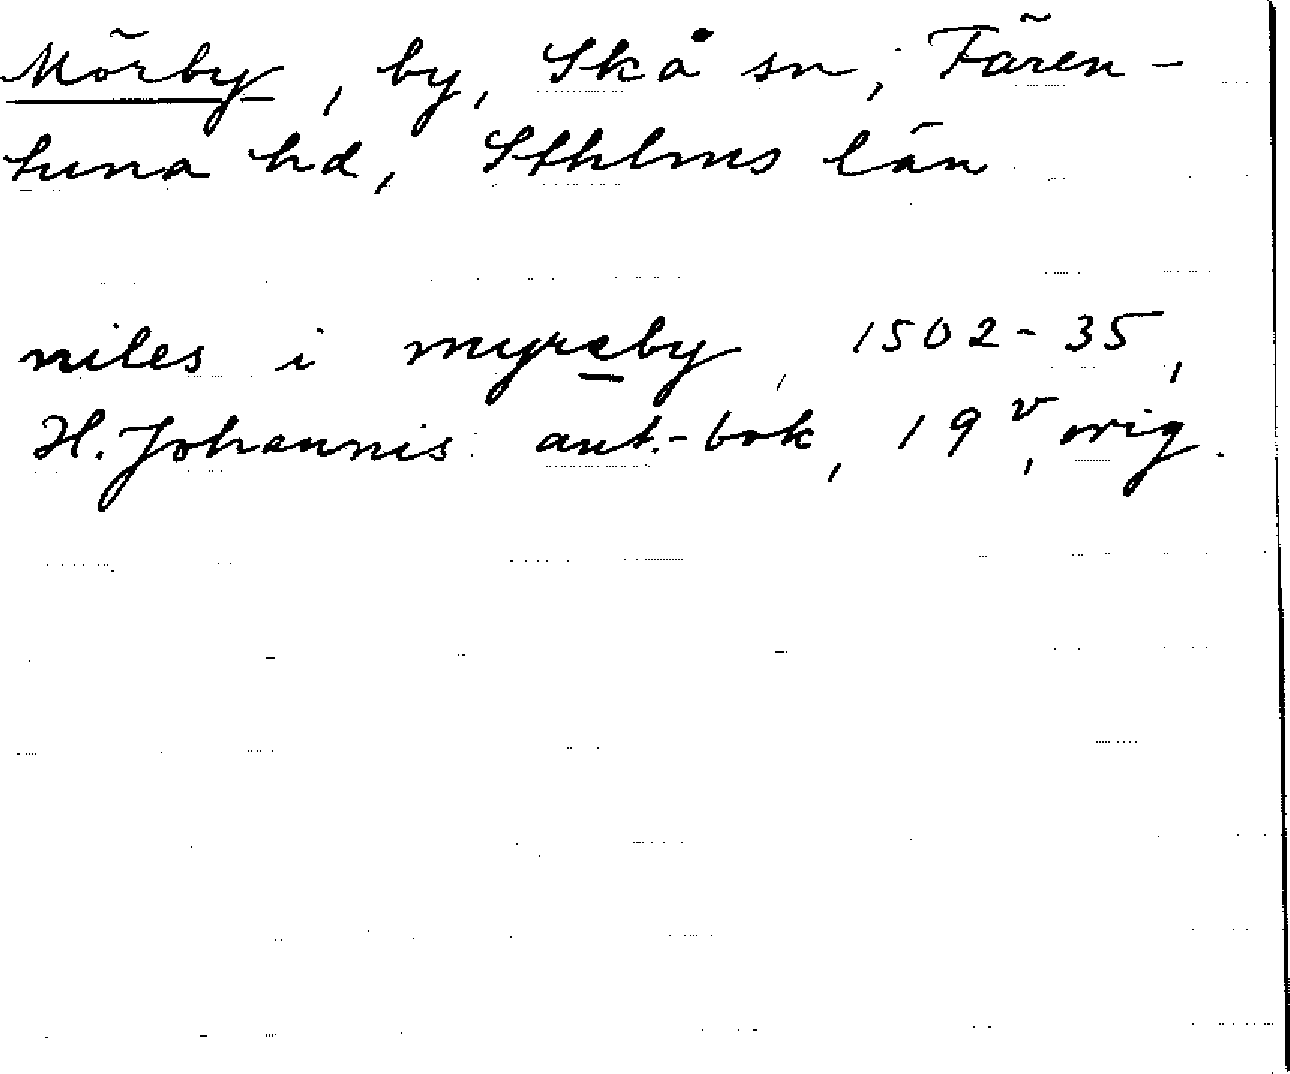 Mörby, by, Skå sn, Fären-
tuna hd, Sthlms län
niles i myreby, 1502-35,
H. Johannis ant.-bok, 19v, orig.